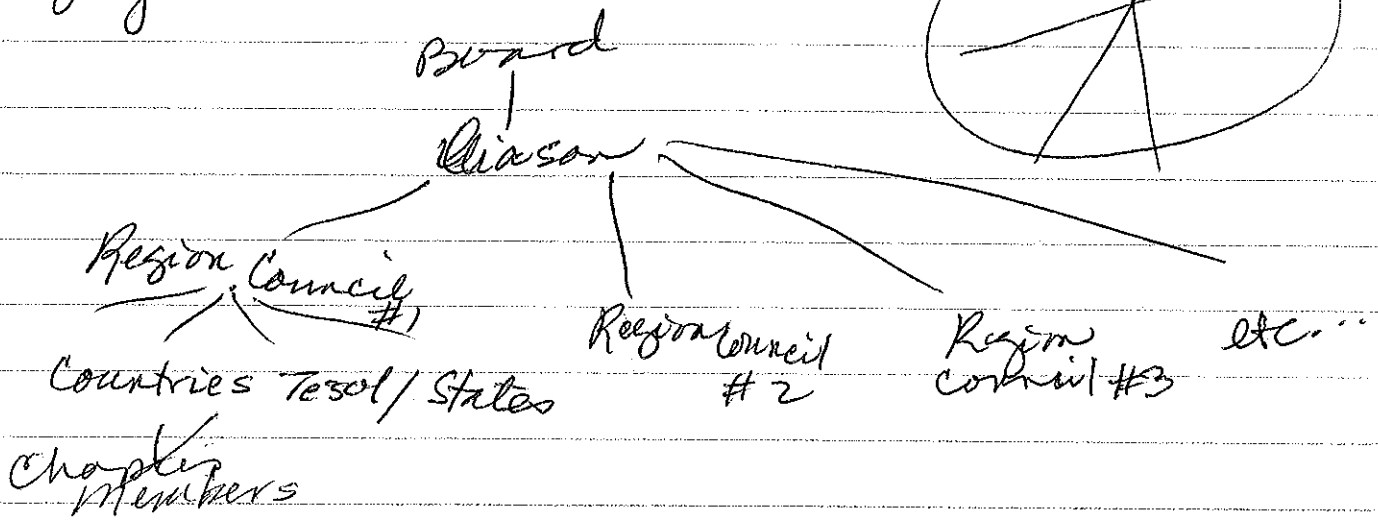 Board
Liason
Region Council
#1
Region Council
#2
Region
Council #3
etc...
Countries Tesol / States
Chapters
Members